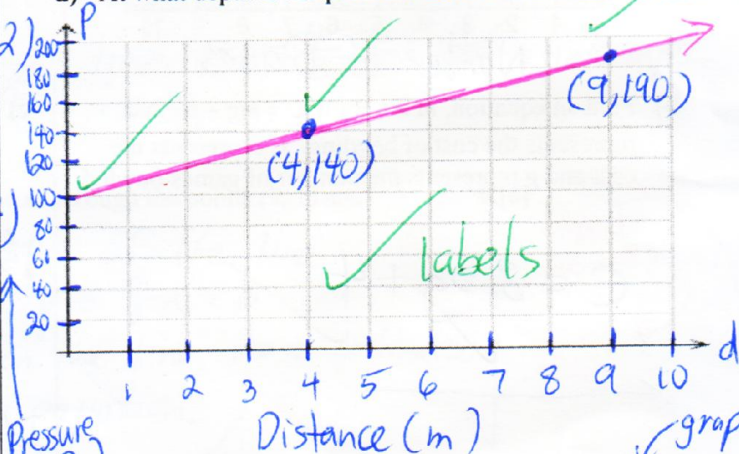 P
2)
200
180
160
140
120
100
80
60
40
20
(9,190)
(4,140)
labels
1 2 3 4 5 6 7 8 9 10
d
Pressure
Distance (m)
grap